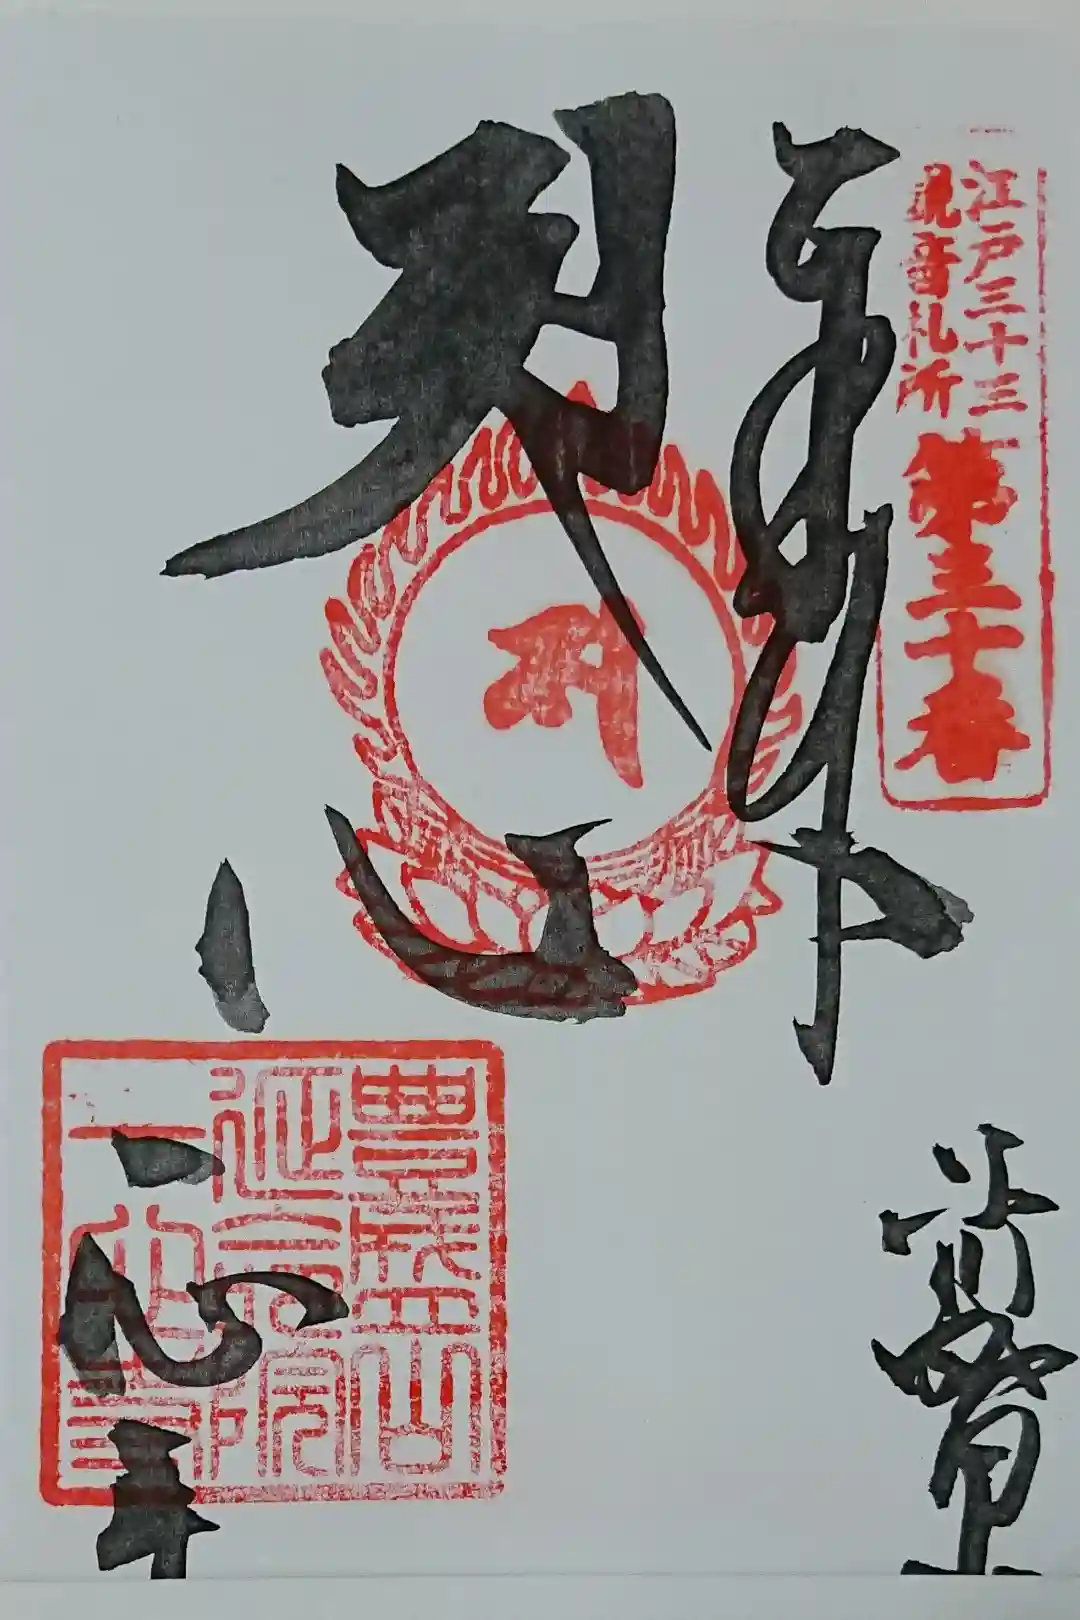 江戸三十三
観音札所
第三十番
奉拝
一心寺
豊盛山
延命院
一心寺